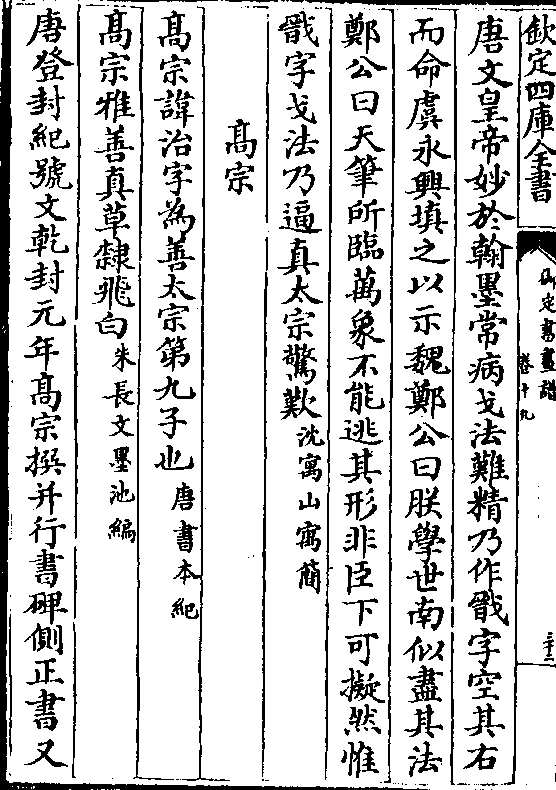 欽定四庫全書
御定書畫譜
卷十九
三十二
唐文皇帝妙於翰墨常病戈法難精乃作戩字空其右
而命虞永興填之以示魏鄭公曰朕學世南似盡其法
鄭公曰天筆所臨萬象不能逃其形非臣下可擬然惟
戩字戈法乃逼真太宗驚歎沈寓山寓簡
髙宗
髙宗諱治字為善太宗第九子也唐書本紀
髙宗雅善真草隸飛白朱長文墨池編
唐登封紀號文乾封元年髙宗撰并行書碑側正書又